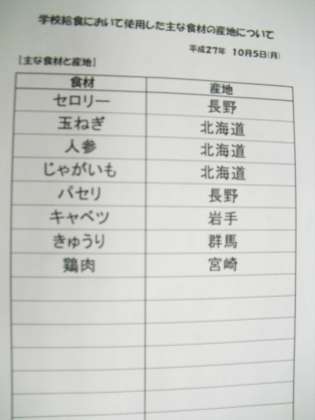 学校給食において使用した主な食材の産地について
平成27年 10月5日(月)
[主な食材と産地]
食材 産地
セロリー 長野
玉ねぎ 北海道
人参 北海道
じゃがいも 北海道
パセリ 長野
キャベツ 岩手
きゅうり 群馬
鶏肉 宮崎